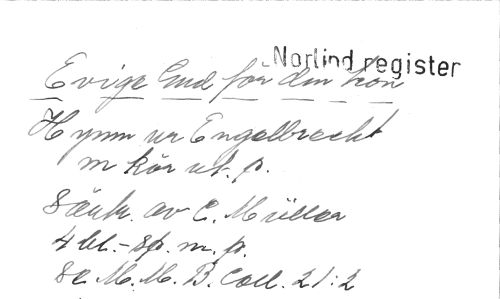 Norlind register
Evige Gud för din tron
Hymn ur Engelbrecht
m kör ut. p.
Sänk. av C. Müller
4 bl. - sp. m. p.
Se M. M. B. Coll. 21:2